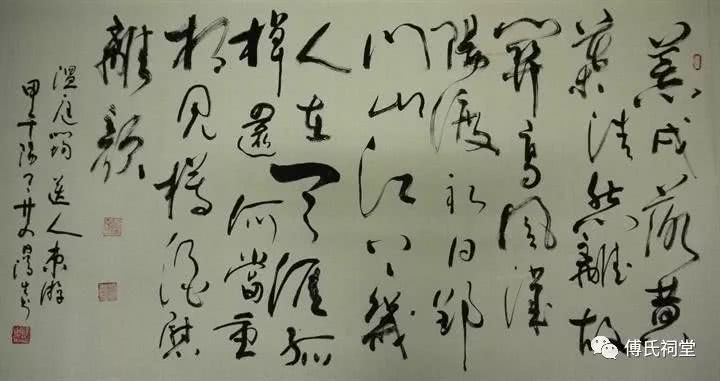 荒戍落黄
葉浩然離故
關高風漢
陽渡初日郢
門山江上幾
人在天涯孤
棹還何當重
相見樽酒慰
離顏
溫庭筠 送人東游
甲午陽月廿
傅氏祠堂